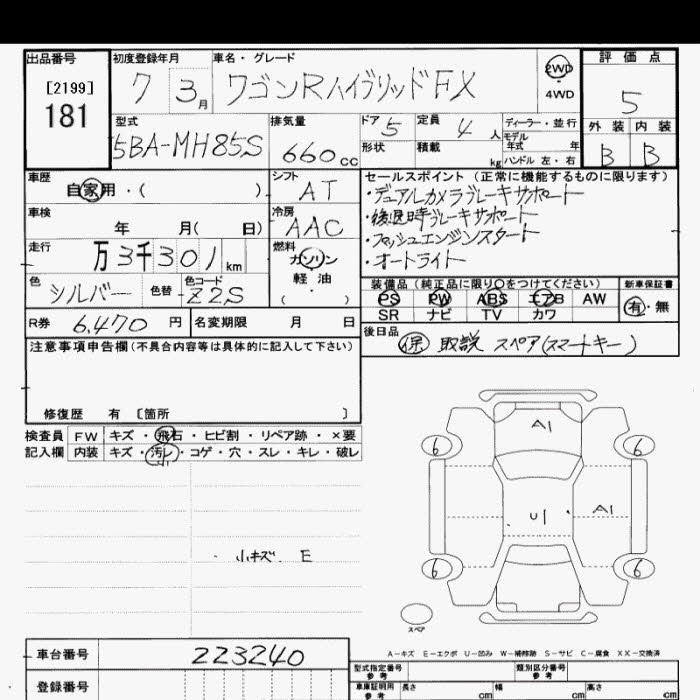 出品番号 初度登録年月 車名・グレード 評価点
[2199]
181
7 3月 ワゴンRハイブリッドFX 2WD 4WD 5
型式 排気量 ドア 5 定員 4人 ディーラー・並行 外装 内装
5BA-MH85S 660cc 形状 積載 kg モデル年式 年 ハンドル 左・右 B B
車歴 シフト セールスポイント (正常に機能するものに限ります)
自家用・( ) AT ・デュアルカメラブレーキサポート
車検 冷房 ・後退時ブレーキサポート
年 月( 日) AAC ・プッシュエンジンスタート
走行 燃料 ・オートライト
万3千301km ガソリン
軽油
( )
色 シルバー 色替 色コード Z2S
装備品 (純正品に限り○をつけてください) 新車保証書
PS PW ABS エアB AW 有・無
SR ナビ TV カワ
R券 6,470円 名変期限 月 日
後日品
保 取説 スペア(スマートキー)
注意事項申告欄(不具合内容等は具体的に記入して下さい)
修復歴 有 [箇所 ]
検査員 FW キズ・飛石・ヒビ割・リペア跡・×要
記入欄 内装 キズ・汚レ・コゲ・穴・スレ・キレ・破レ
A1
6 6
U1 A1
・小キズ E
6 6
スペア
A-キズ E-エクボ U-凹み W-補修跡 S-サビ C-腐食 XX-交換済
車台番号 223240
型式指定番号 類別区分番号
登録番号 車庫証明用参考 長さ cm 幅 cm 高さ cm